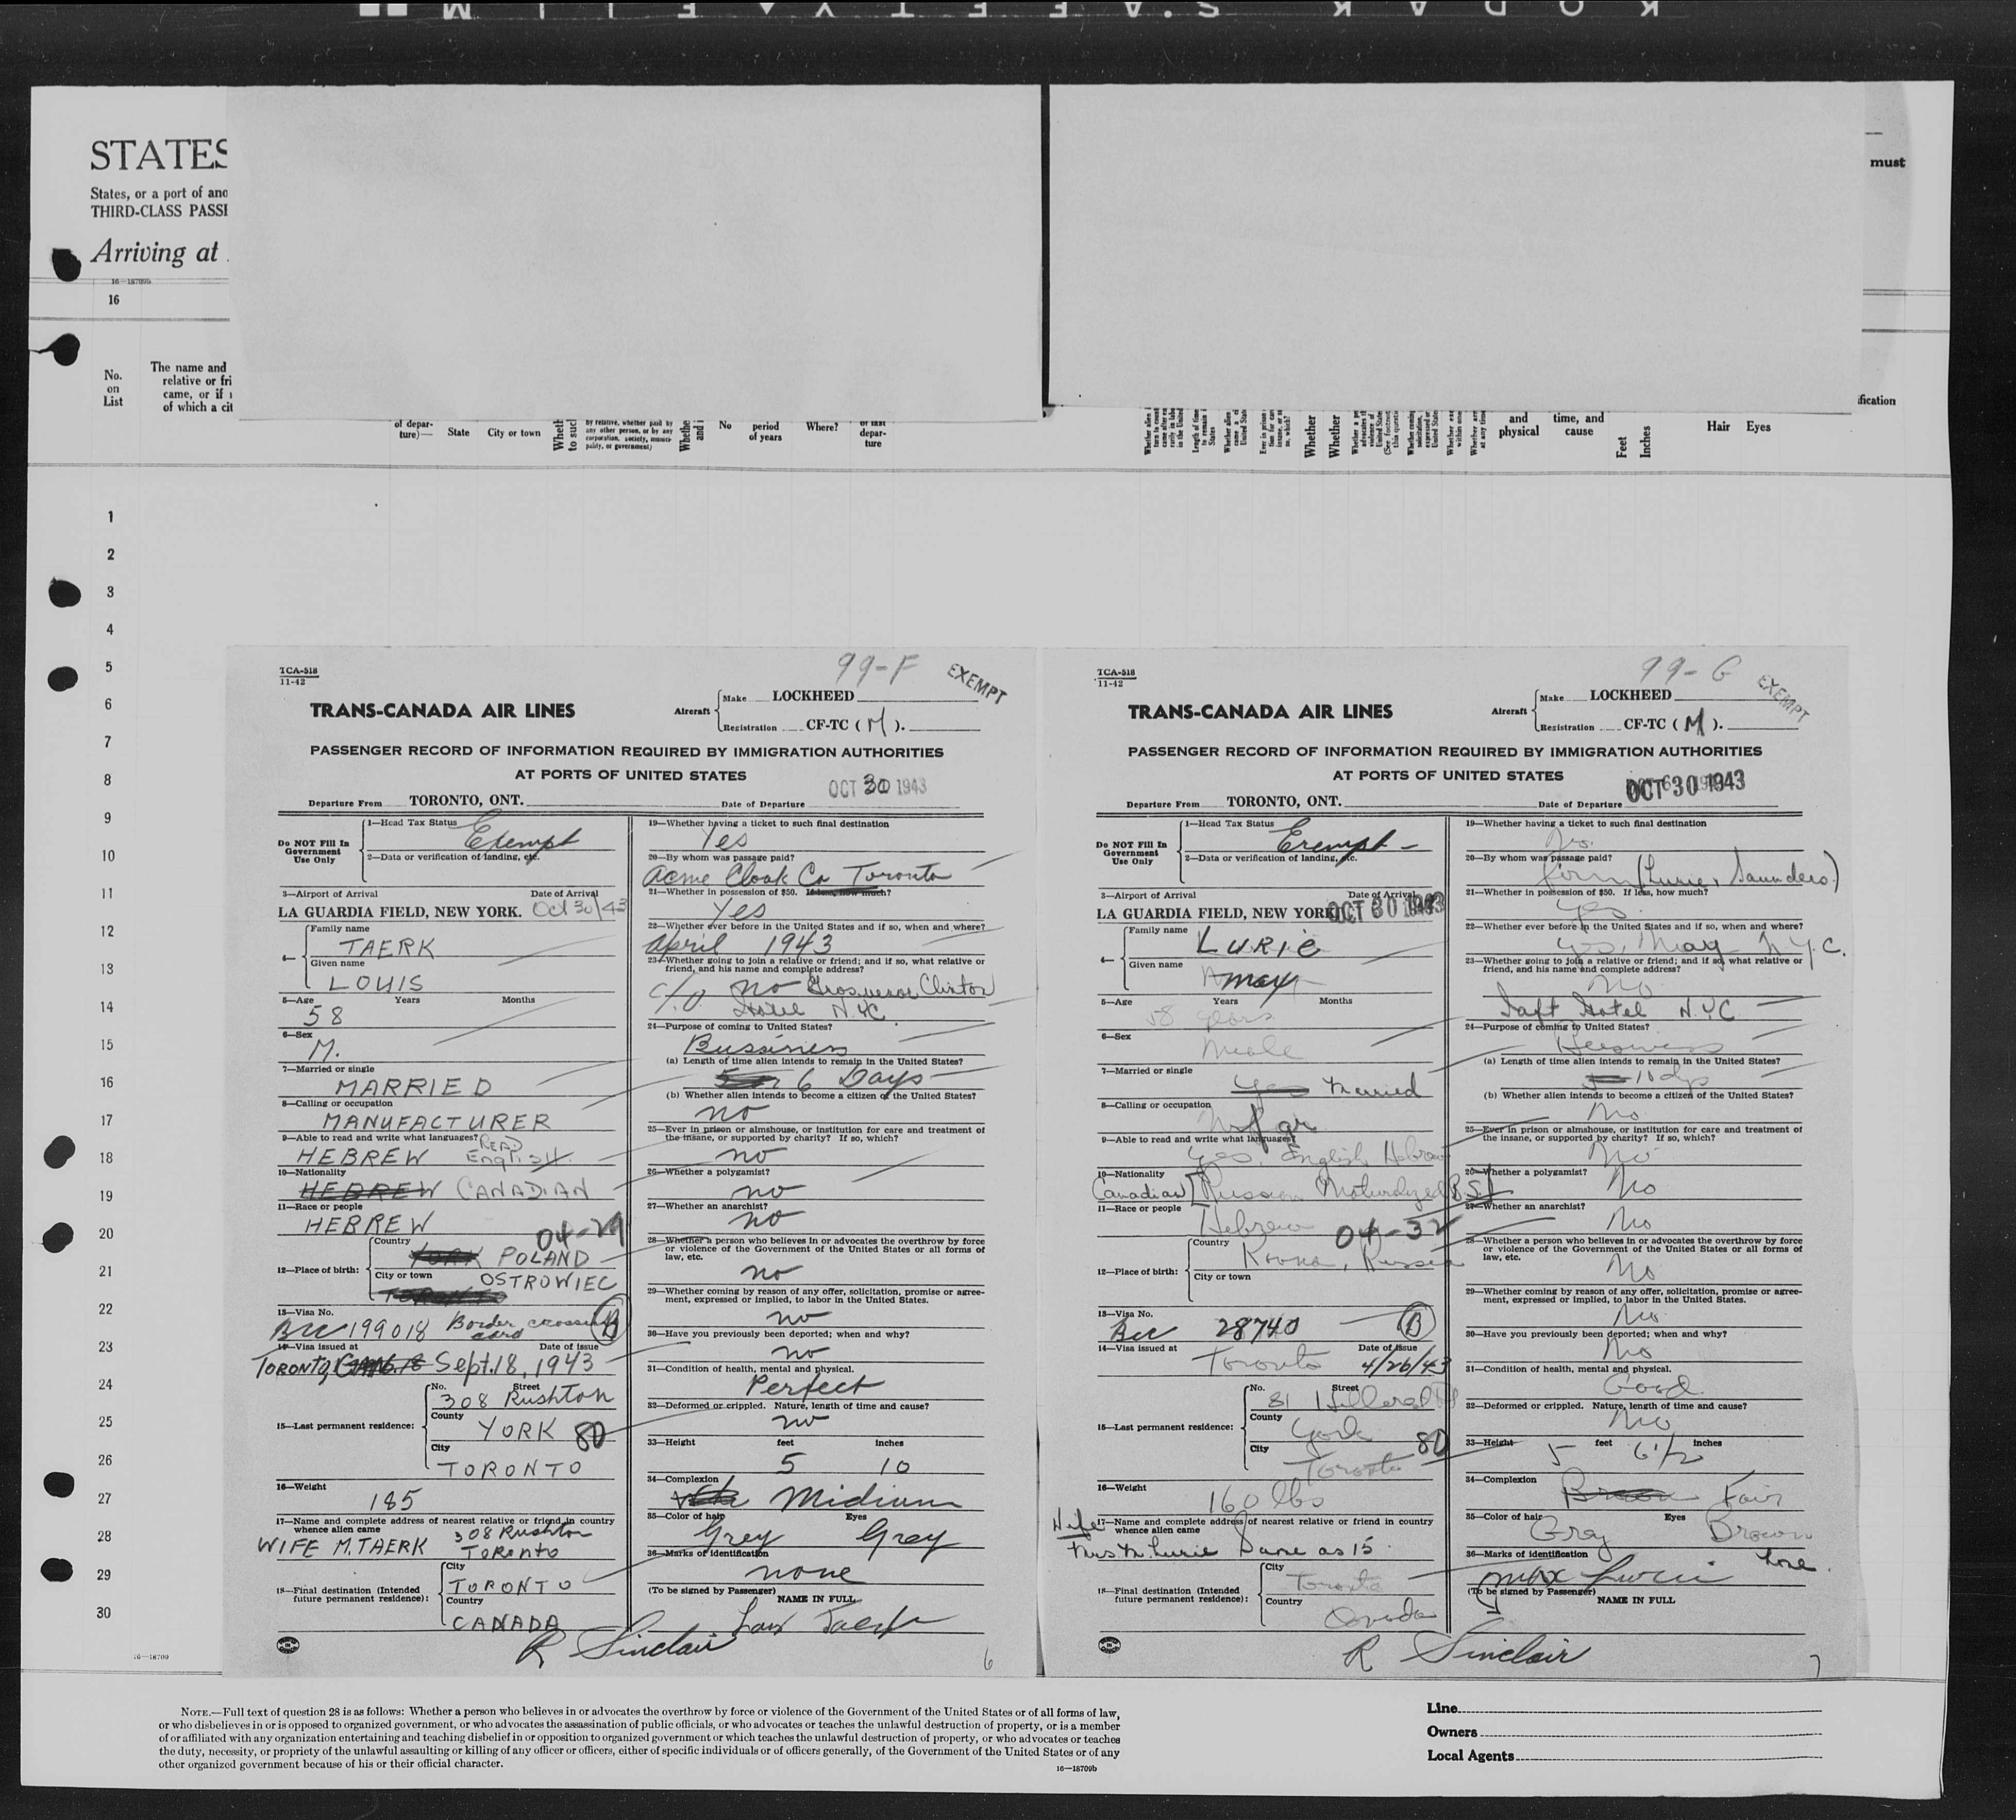 KODAK SAFETY FILM
STATES
States, or a port of ano
THIRD-CLASS PASSE
Arriving at
16—18709b
16
must
No. on List
The name and
relative or fri
came, or if
of which a cit
of depar-
ture)—
State
City or town
by relative, whether paid by
any other person, or by any
corporation, society, munici-
pality, or government)
No
period
of years
Where?
of last
depar-
ture
and
physical
time, and
cause
Feet
Inches
Hair
Eyes
fication
1
2
3
4
5
6
7
8
9
10
11
12
13
14
15
16
17
18
19
20
21
22
23
24
25
26
27
28
29
30
16—18709
TCA-518
11-42
99-F
EXEMPT
TRANS-CANADA AIR LINES
Aircraft
Make LOCKHEED
Registration CF-TC ( M ).
PASSENGER RECORD OF INFORMATION REQUIRED BY IMMIGRATION AUTHORITIES
AT PORTS OF UNITED STATES
OCT 30 1943
Departure From TORONTO, ONT.
Date of Departure
Do NOT Fill In
Government
Use Only
1—Head Tax Status
Exempt
2—Data or verification of landing, etc.
3—Airport of Arrival
Date of Arrival
LA GUARDIA FIELD, NEW YORK. Oct 30/43
4—
Family name
TAERK
Given name
LOUIS
5—Age Years Months
58
6—Sex
M.
7—Married or single
MARRIED
8—Calling or occupation
MANUFACTURER
9—Able to read and write what languages?
HEBREW READ ENGLISH
10—Nationality
HEBREW CANADIAN
11—Race or people
HEBREW
04-29
12—Place of birth:
Country
YORK POLAND
City or town
OSTROWIEC
TORONTO
13—Visa No.
BCC 199018 Border crossing card B
14—Visa issued at Date of issue
TORONTO, Sept. 18, 1943
15—Last permanent residence:
No. Street
308 Rushton
County
YORK 80
City
TORONTO
16—Weight
185
17—Name and complete address of nearest relative or friend in country
whence alien came
308 Rushton
WIFE M. TAERK TORONTO
18—Final destination (Intended
future permanent residence):
City
TORONTO
Country
CANADA
19—Whether having a ticket to such final destination
Yes
20—By whom was passage paid?
Acme Cloak Co Toronto
21—Whether in possession of $50. If less, how much?
Yes
22—Whether ever before in the United States and if so, when and where?
April 1943
23—Whether going to join a relative or friend; and if so, what relative or
friend, and his name and complete address?
c/o no Grosvenor Clinton
Hotel N.Y.C.
24—Purpose of coming to United States?
Bussiness
(a) Length of time alien intends to remain in the United States?
6 Days
(b) Whether alien intends to become a citizen of the United States?
no
25—Ever in prison or almshouse, or institution for care and treatment of
the insane, or supported by charity? If so, which?
no
26—Whether a polygamist?
no
27—Whether an anarchist?
no
28—Whether a person who believes in or advocates the overthrow by force
or violence of the Government of the United States or all forms of
law, etc.
no
29—Whether coming by reason of any offer, solicitation, promise or agree-
ment, expressed or implied, to labor in the United States.
no
30—Have you previously been deported; when and why?
no
31—Condition of health, mental and physical.
Perfect
32—Deformed or crippled. Nature, length of time and cause?
no
33—Height feet inches
5 10
34—Complexion
Midium
35—Color of hair Eyes
Grey Grey
36—Marks of identification
none
(To be signed by Passenger) NAME IN FULL
Lou Taerk
R Sinclair
6
TCA-518
11-42
99-G
EXEMPT
TRANS-CANADA AIR LINES
Aircraft
Make LOCKHEED
Registration CF-TC ( M ).
PASSENGER RECORD OF INFORMATION REQUIRED BY IMMIGRATION AUTHORITIES
AT PORTS OF UNITED STATES
OCT 30 1943
Departure From TORONTO, ONT.
Date of Departure
Do NOT Fill In
Government
Use Only
1—Head Tax Status
Exempt –
2—Data or verification of landing, etc.
3—Airport of Arrival
Date of Arrival
LA GUARDIA FIELD, NEW YORK. OCT 30 1943
4—
Family name
LURIE
Given name
max
5—Age Years Months
58 years
6—Sex
Male
7—Married or single
Yes Married
8—Calling or occupation
Mfgr
9—Able to read and write what languages?
Yes, English, Hebrew
10—Nationality
Canadian [Russian Naturalized B.S.]
11—Race or people
Hebrew
04-32
12—Place of birth:
Country
Kovna, Russia
City or town
13—Visa No.
Bcc 28740 B
14—Visa issued at Date of issue
Toronto 4/26/43
15—Last permanent residence:
No. Street
81 Hillcrest
County
York 80
City
Toronto
16—Weight
160 lbs
Wife
17—Name and complete address of nearest relative or friend in country
whence alien came
Mrs M. Lurie Same as 15
18—Final destination (Intended
future permanent residence):
City
Toronto
Country
Canada
19—Whether having a ticket to such final destination
20—By whom was passage paid?
firm (Lurie, Saunders.)
21—Whether in possession of $50. If less, how much?
Yes
22—Whether ever before in the United States and if so, when and where?
Yes, May N.Y.C.
23—Whether going to join a relative or friend; and if so, what relative or
friend, and his name and complete address?
No
Taft Hotel N.Y.C
24—Purpose of coming to United States?
Business
(a) Length of time alien intends to remain in the United States?
10 dys
(b) Whether alien intends to become a citizen of the United States?
No
25—Ever in prison or almshouse, or institution for care and treatment of
the insane, or supported by charity? If so, which?
No
26—Whether a polygamist?
No
27—Whether an anarchist?
No
28—Whether a person who believes in or advocates the overthrow by force
or violence of the Government of the United States or all forms of
law, etc.
No
29—Whether coming by reason of any offer, solicitation, promise or agree-
ment, expressed or implied, to labor in the United States.
No
30—Have you previously been deported; when and why?
No
31—Condition of health, mental and physical.
Good
32—Deformed or crippled. Nature, length of time and cause?
No
33—Height feet inches
5 6 1/2
34—Complexion
Brown Fair
35—Color of hair Eyes
Gray Brown
36—Marks of identification
Max Lurie
(To be signed by Passenger) NAME IN FULL
R Sinclair
7
NOTE.—Full text of question 28 is as follows: Whether a person who believes in or advocates the overthrow by force or violence of the Government of the United States or of all forms of law,
or who disbelieves in or is opposed to organized government, or who advocates the assassination of public officials, or who advocates or teaches the unlawful destruction of property, or is a member
of or affiliated with any organization entertaining and teaching disbelief in or opposition to organized government or which teaches the unlawful destruction of property, or who advocates or teaches
the duty, necessity, or propriety of the unlawful assaulting or killing of any officer or officers, either of specific individuals or of officers generally, of the Government of the United States or of any
other organized government because of his or their official character.
16—18709b
Line
Owners
Local Agents